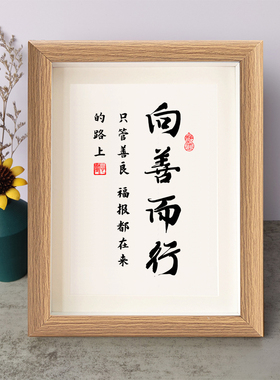 向善而行
只管善良 福报都在来
的路上